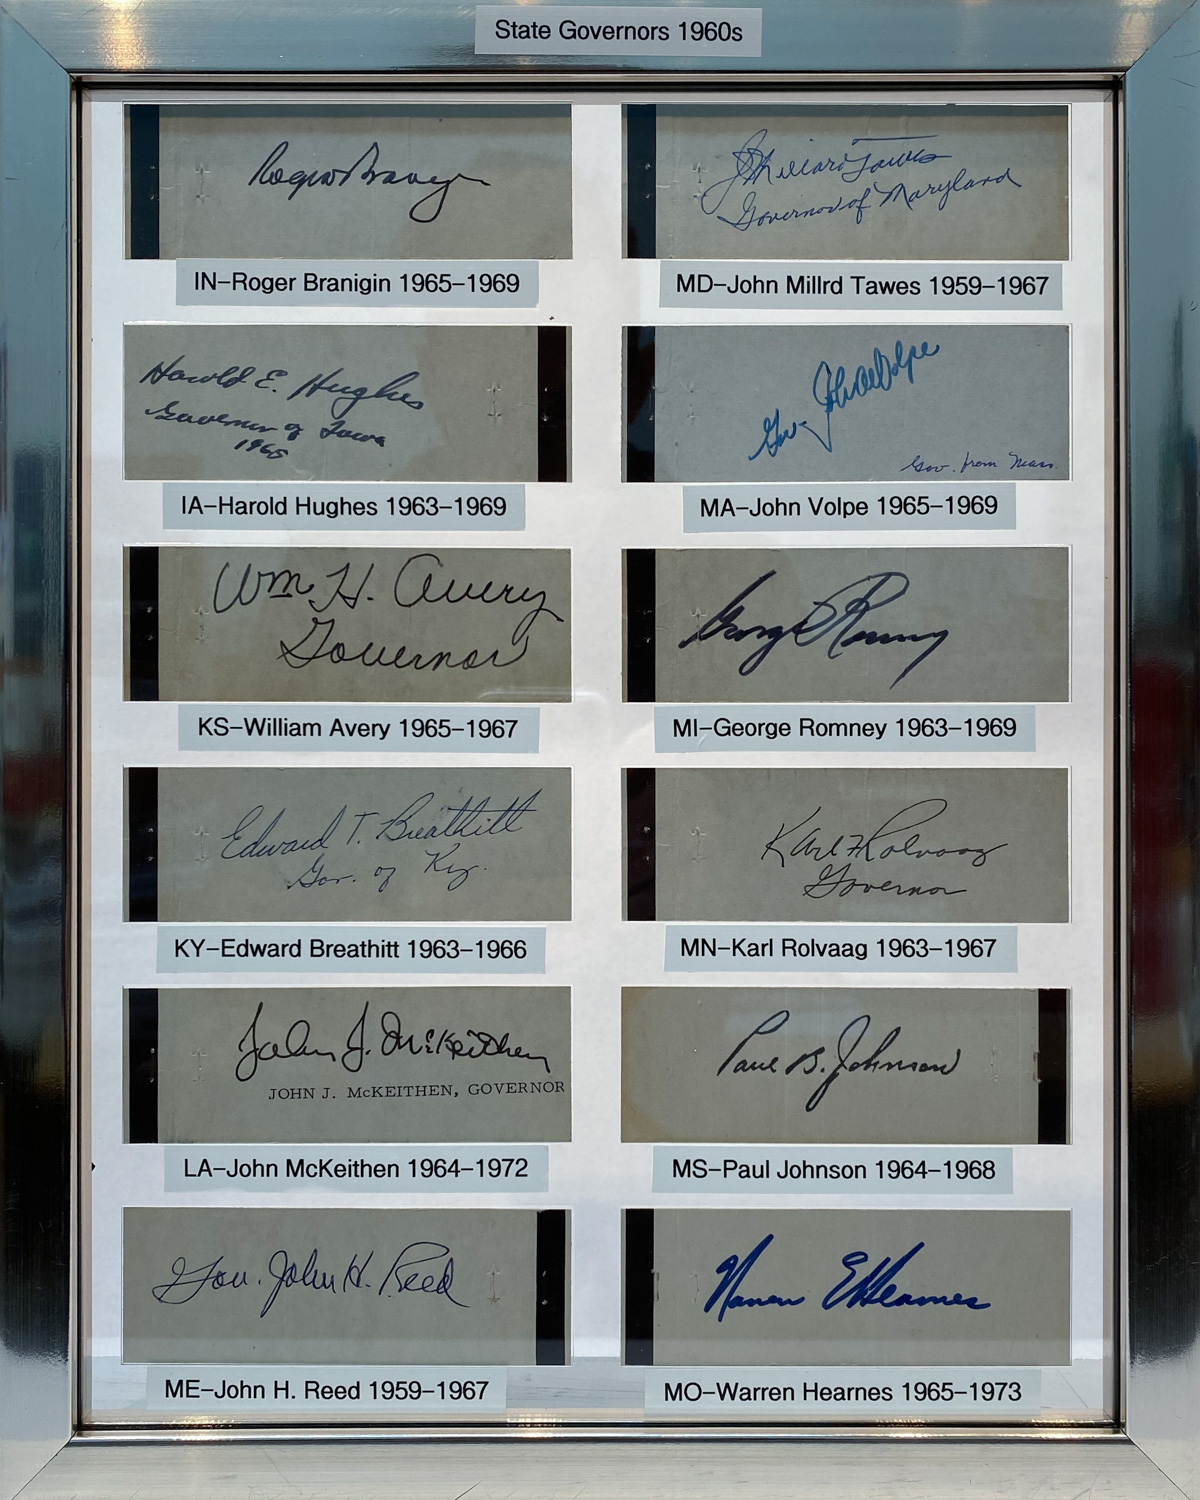 State Governors 1960s
Roger Branigin
IN–Roger Branigin 1965–1969
J Millard Tawes
Governor of Maryland
MD–John Millrd Tawes 1959–1967
Harold E. Hughes
Governor of Iowa
1965
IA–Harold Hughes 1963–1969
Gov. John A Volpe
Gov. from Mass.
MA–John Volpe 1965–1969
Wm H. Avery
Governor
KS–William Avery 1965–1967
George Romney
MI–George Romney 1963–1969
Edward T. Breathitt
Gov. of Ky.
KY–Edward Breathitt 1963–1966
Karl F Rolvaag
Governor
MN–Karl Rolvaag 1963–1967
John J. McKeithen
JOHN J. McKEITHEN, GOVERNOR
LA–John McKeithen 1964–1972
Paul B. Johnson
MS–Paul Johnson 1964–1968
Gov. John H. Reed
ME–John H. Reed 1959–1967
Warren E Hearnes
MO–Warren Hearnes 1965–1973